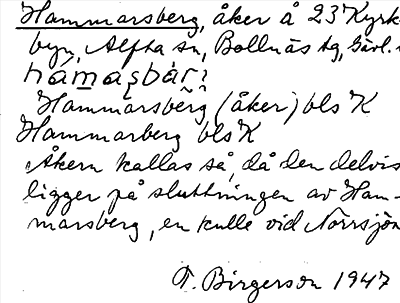 Hammarsberg, åker å 23 Kyrk
byn, Alfta sn, Bollnäs tg, Gävl.
hàmaṣbær̀
Hammarsberg (åker) bls K
Hammarberg bls K
Åkern kallas så, då den delvis
ligger på sluttningen av Ham-
marsberg, en kulle vid Norrsjön
T. Birgerson 1947